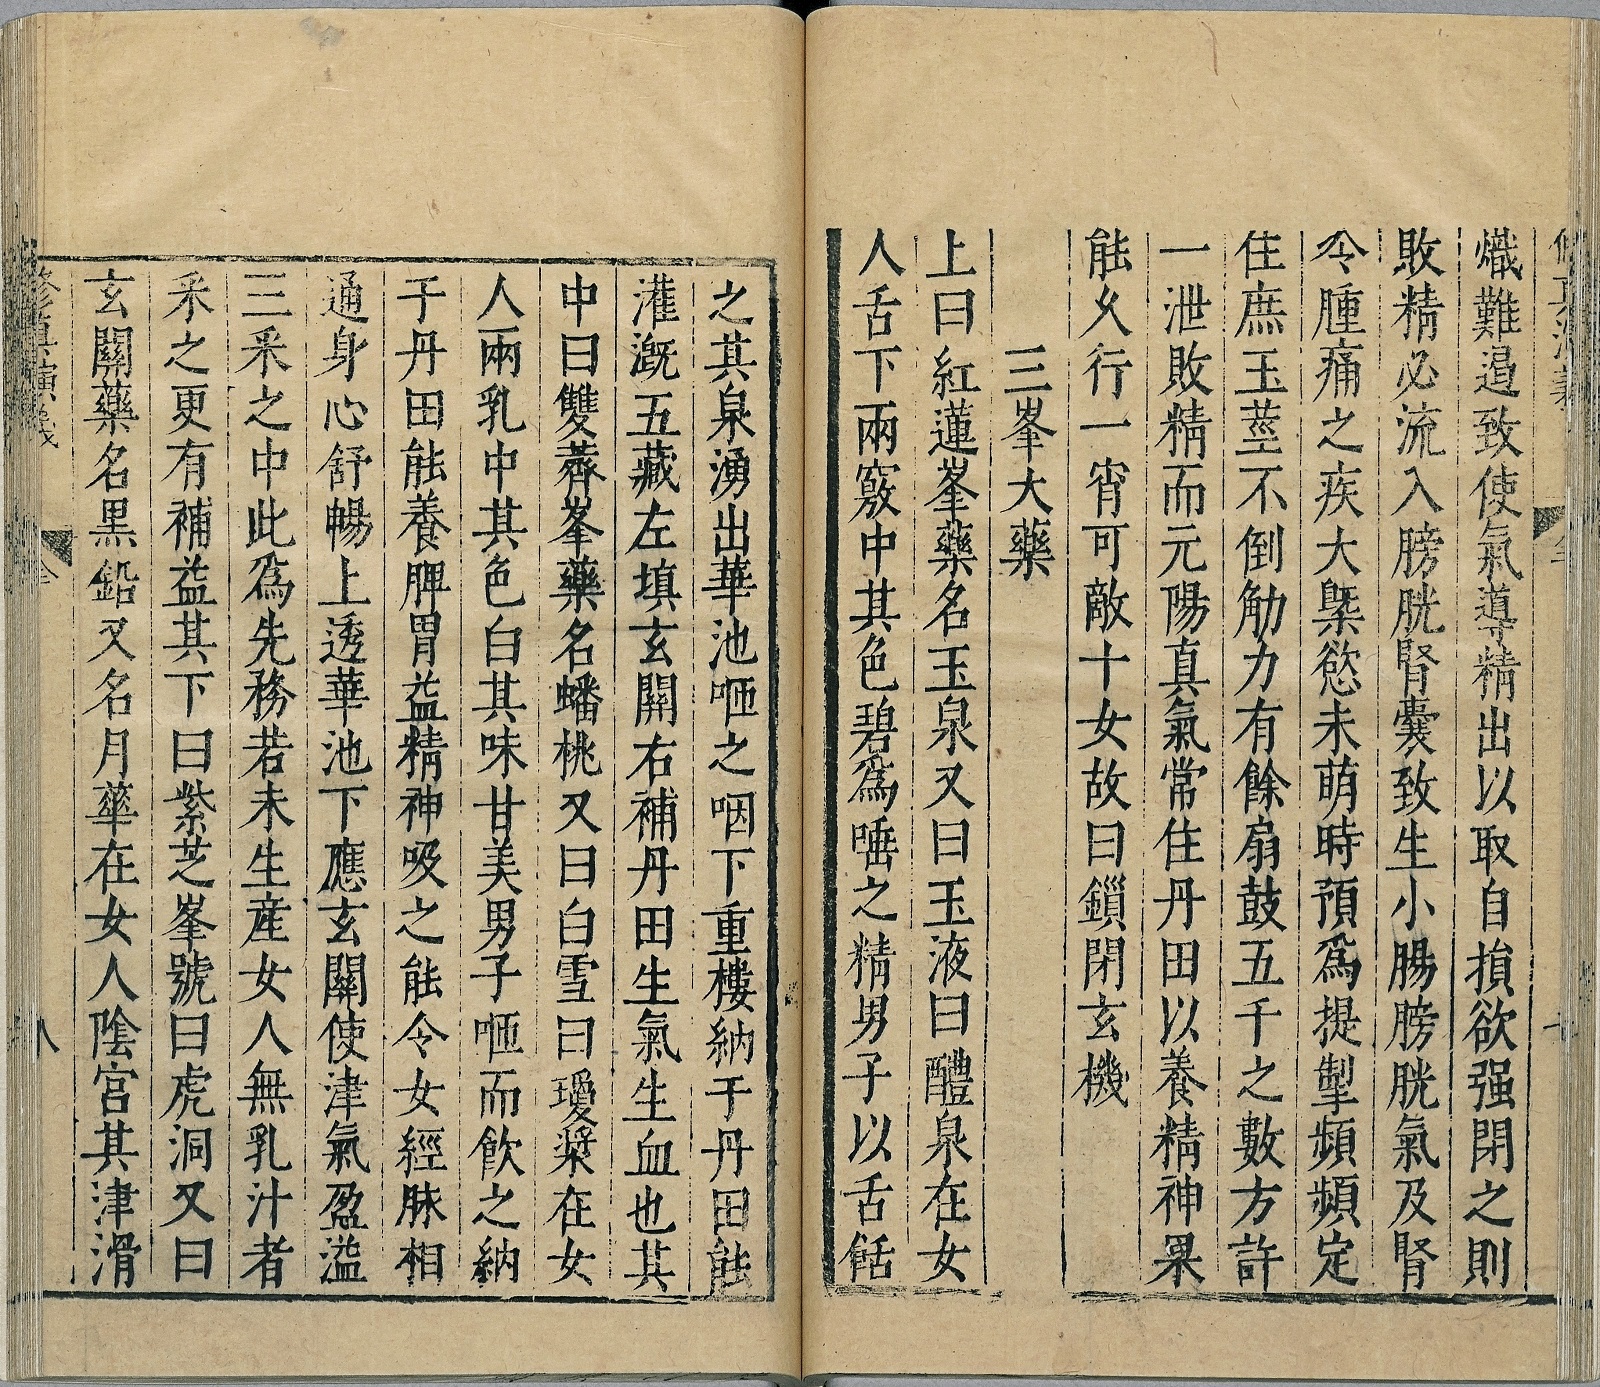 熾難遏致使氣導精出以取自損欲强閉之則
敗精必流入膀胱腎囊致生小腸膀胱氣及腎
令腫痛之疾大槩慾未萌時預爲提掣頻頻定
住庶玉莖不倒觔力有餘扇鼓五千之數方許
一泄敗精而元陽真氣常住丹田以養精神果
能久行一宵可敵十女故曰鎻閉玄機
三峯大藥
上曰紅蓮峯藥名玉泉又曰玉液曰醴泉在女
人舌下兩竅中其色碧爲唾之精男子以舌餂
之其泉湧出華池咂之咽下重樓納于丹田能
灌漑五藏左填玄關右補丹田生氣生血也其
中曰雙薺峯藥名蟠桃又曰白雪曰瓊漿在女
人兩乳中其色白其味甘美男子咂而飲之納
于丹田能養脾胃益精神吸之能令女經脉相
通身心舒暢上透華池下應玄關使津氣盈溢
三釆之中此爲先務若未生産女人無乳汁者
釆之更有補益其下曰紫芝峯號曰虎洞又曰
玄關藥名黒鉛又名月華在女人陰宮其津滑
修真演義
八